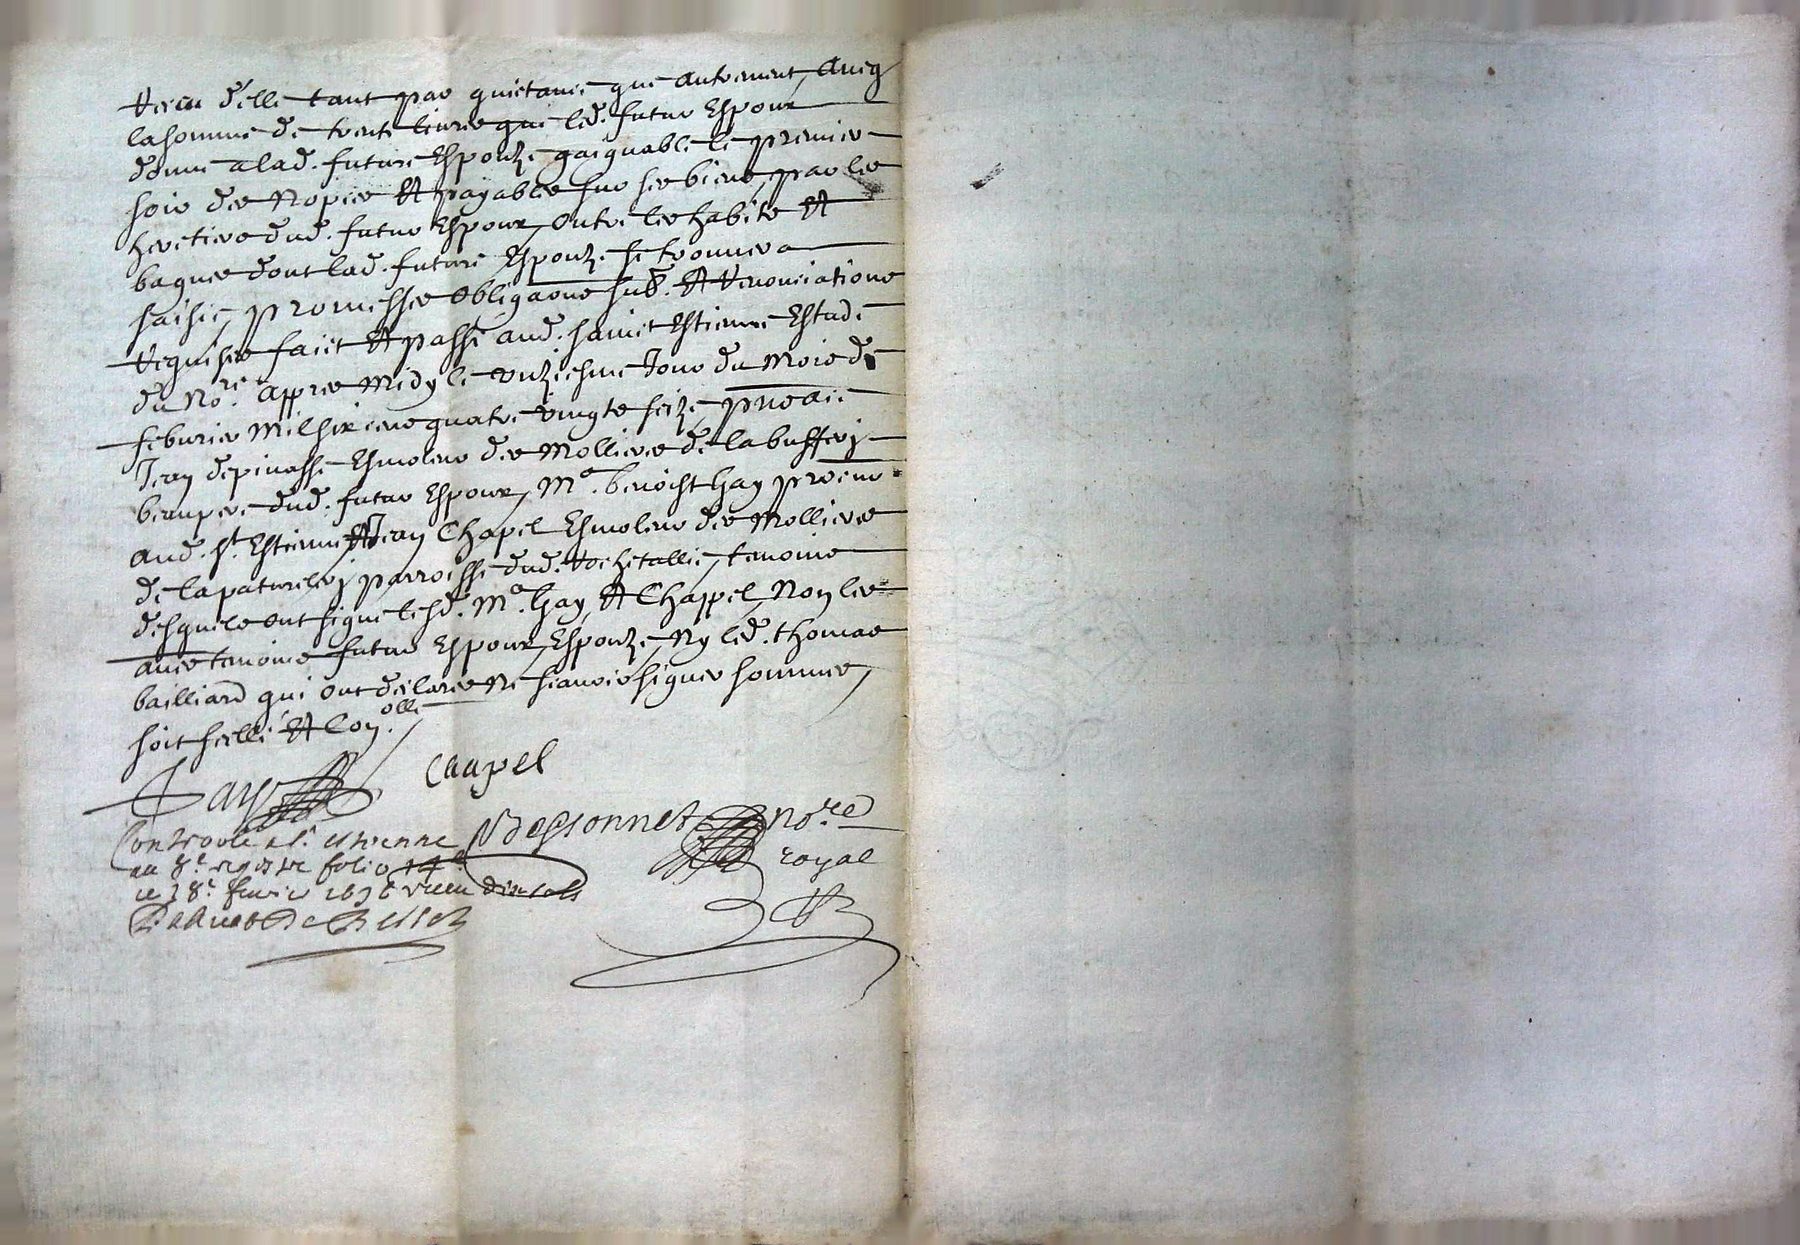 Receu d'elle tant par quictance que autrement, Aveq
la somme de trente livres que led. futur Espoux
donne a lad. future Espouze gaignable le premier
soir des Nopces Et payables sur ses biens, par les
heretiers dud. futur Espoux, outre les habits Et
bagues dont lad. future Espouze se trouvera
saisie, promesses obligaons sub. Et Renonciations
Requises faict Et passé aud. sainct Estienne Estude
du No.re appres Midy le unziesme Jour du Mois de
febvrier Mil six cens quatre vingts seize, pnce
Jean depinasse Esmoleur des Mollieres de la
beaupere dud. futur Espoux, Me. benoist Gay
aud. St. Estienne Et Jean Chapel Esmoleur des Mollieres
de parroisse dud. Rochetallie, temoins
desquels ont signe lesd. Me. Gay Et Chappel, Non les
aues temoins futur Espoux, Espouze, Ny led. thomas
bailliard qui ont declarer Ne scavoir signer sommes,
soit scellé Et Con.ollé
Gay
Caapel
Controolé a St. estienne
au 8e registre folio 14
ce 18e fevrier 1696 receu dix sols
Bessonnet No.re
royal